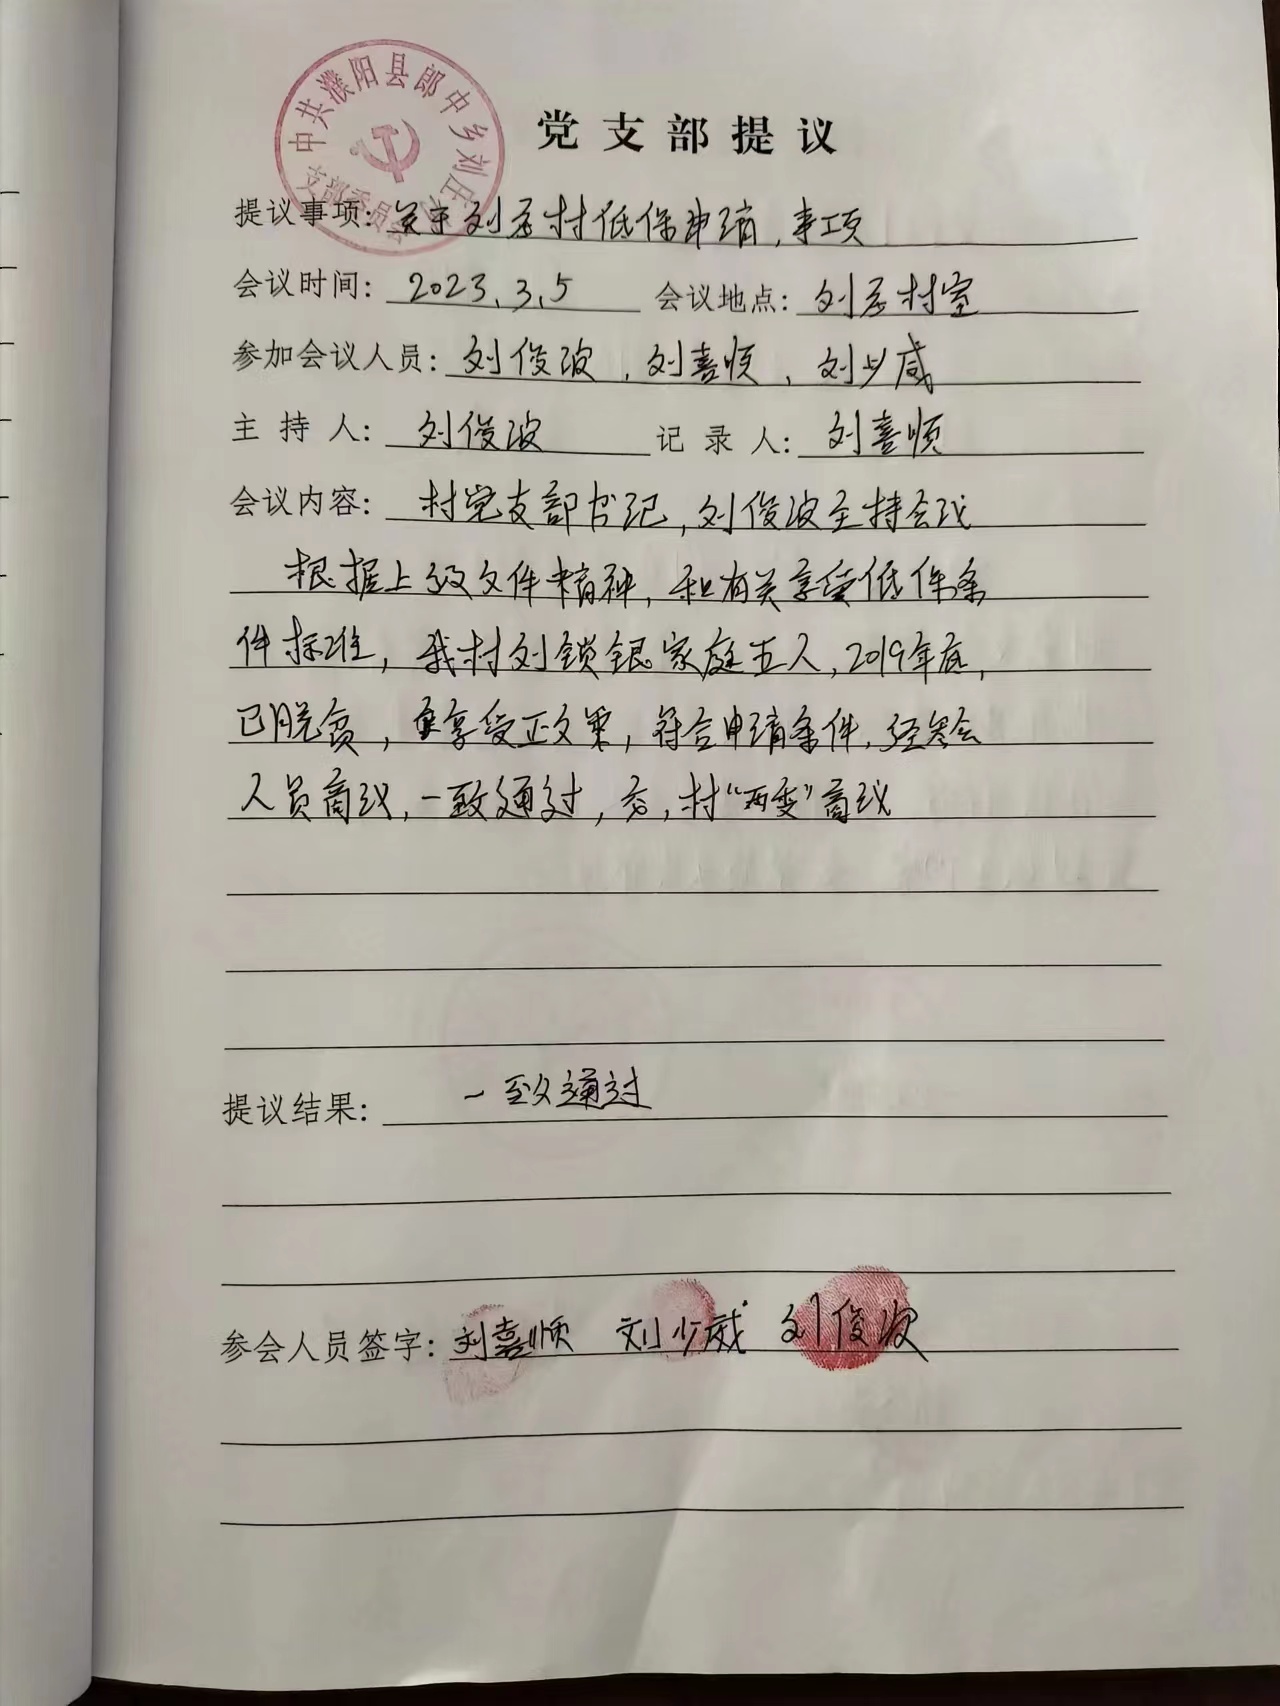 中共濮阳县郎中乡刘庄村
支部委员会
党支部提议
提议事项: 关于刘庄村低保申请,事项
会议时间: 2023.3.5 会议地点: 刘庄村室
参加会议人员: 刘俊波,刘喜顺,刘少威
主持人: 刘俊波 记录人: 刘喜顺
会议内容: 村党支部书记,刘俊波主持会议
根据上级文件精神,和有关享受低件条
件标准,我村刘锁银家庭五人,2019年底,
已脱贫,享受正政策,符合申请条件.经参会
人员商议,一致通过,交,村“两委”商议
提议结果: 一致通过
参会人员签字: 刘喜顺 刘少威 刘俊波